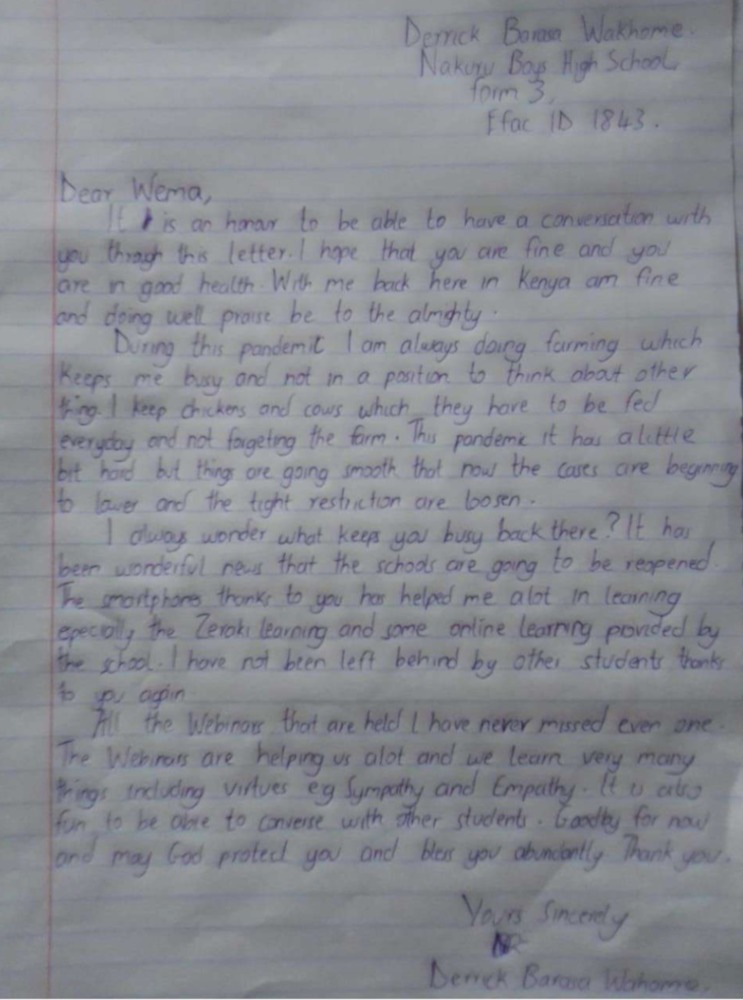 Derrick Barasa Wakhome.
Nakuru Boys High School,
form 3,
Efac ID 1843.
Dear Wema,
It is an honour to be able to have a conversation with
you through this letter. I hope that you are fine and you
are in good health. With me back here in Kenya am fine
and doing well praise be to the almighty.
During this pandemic I am always doing farming which
keeps me busy and not in a position to think about other
thing. I keep chickens and cows which they have to be fed
everyday and not forgeting the farm. This pandemic it has a little
bit hard but things are going smooth that now the cases are beginning
to lower and the tight restriction are loosen.
I always wonder what keeps you busy back there? It has
been wonderful news that the schools are going to be reopened.
The smartphones thanks to you has helped me alot in learning
epecially the Zeraki learning and some online learning provided by
the school. I have not been left behind by other students thanks
to you again.
All the Webinars that are held I have never missed even one.
The Webinars are helping us alot and we learn very many
things including virtues eg Sympathy and Empathy. It is also
fun to be able to converse with other students. Goodby for now
and may God protect you and bless you abundantly Thank you.
Yours Sincerely
Derrick Barasa Wahome.